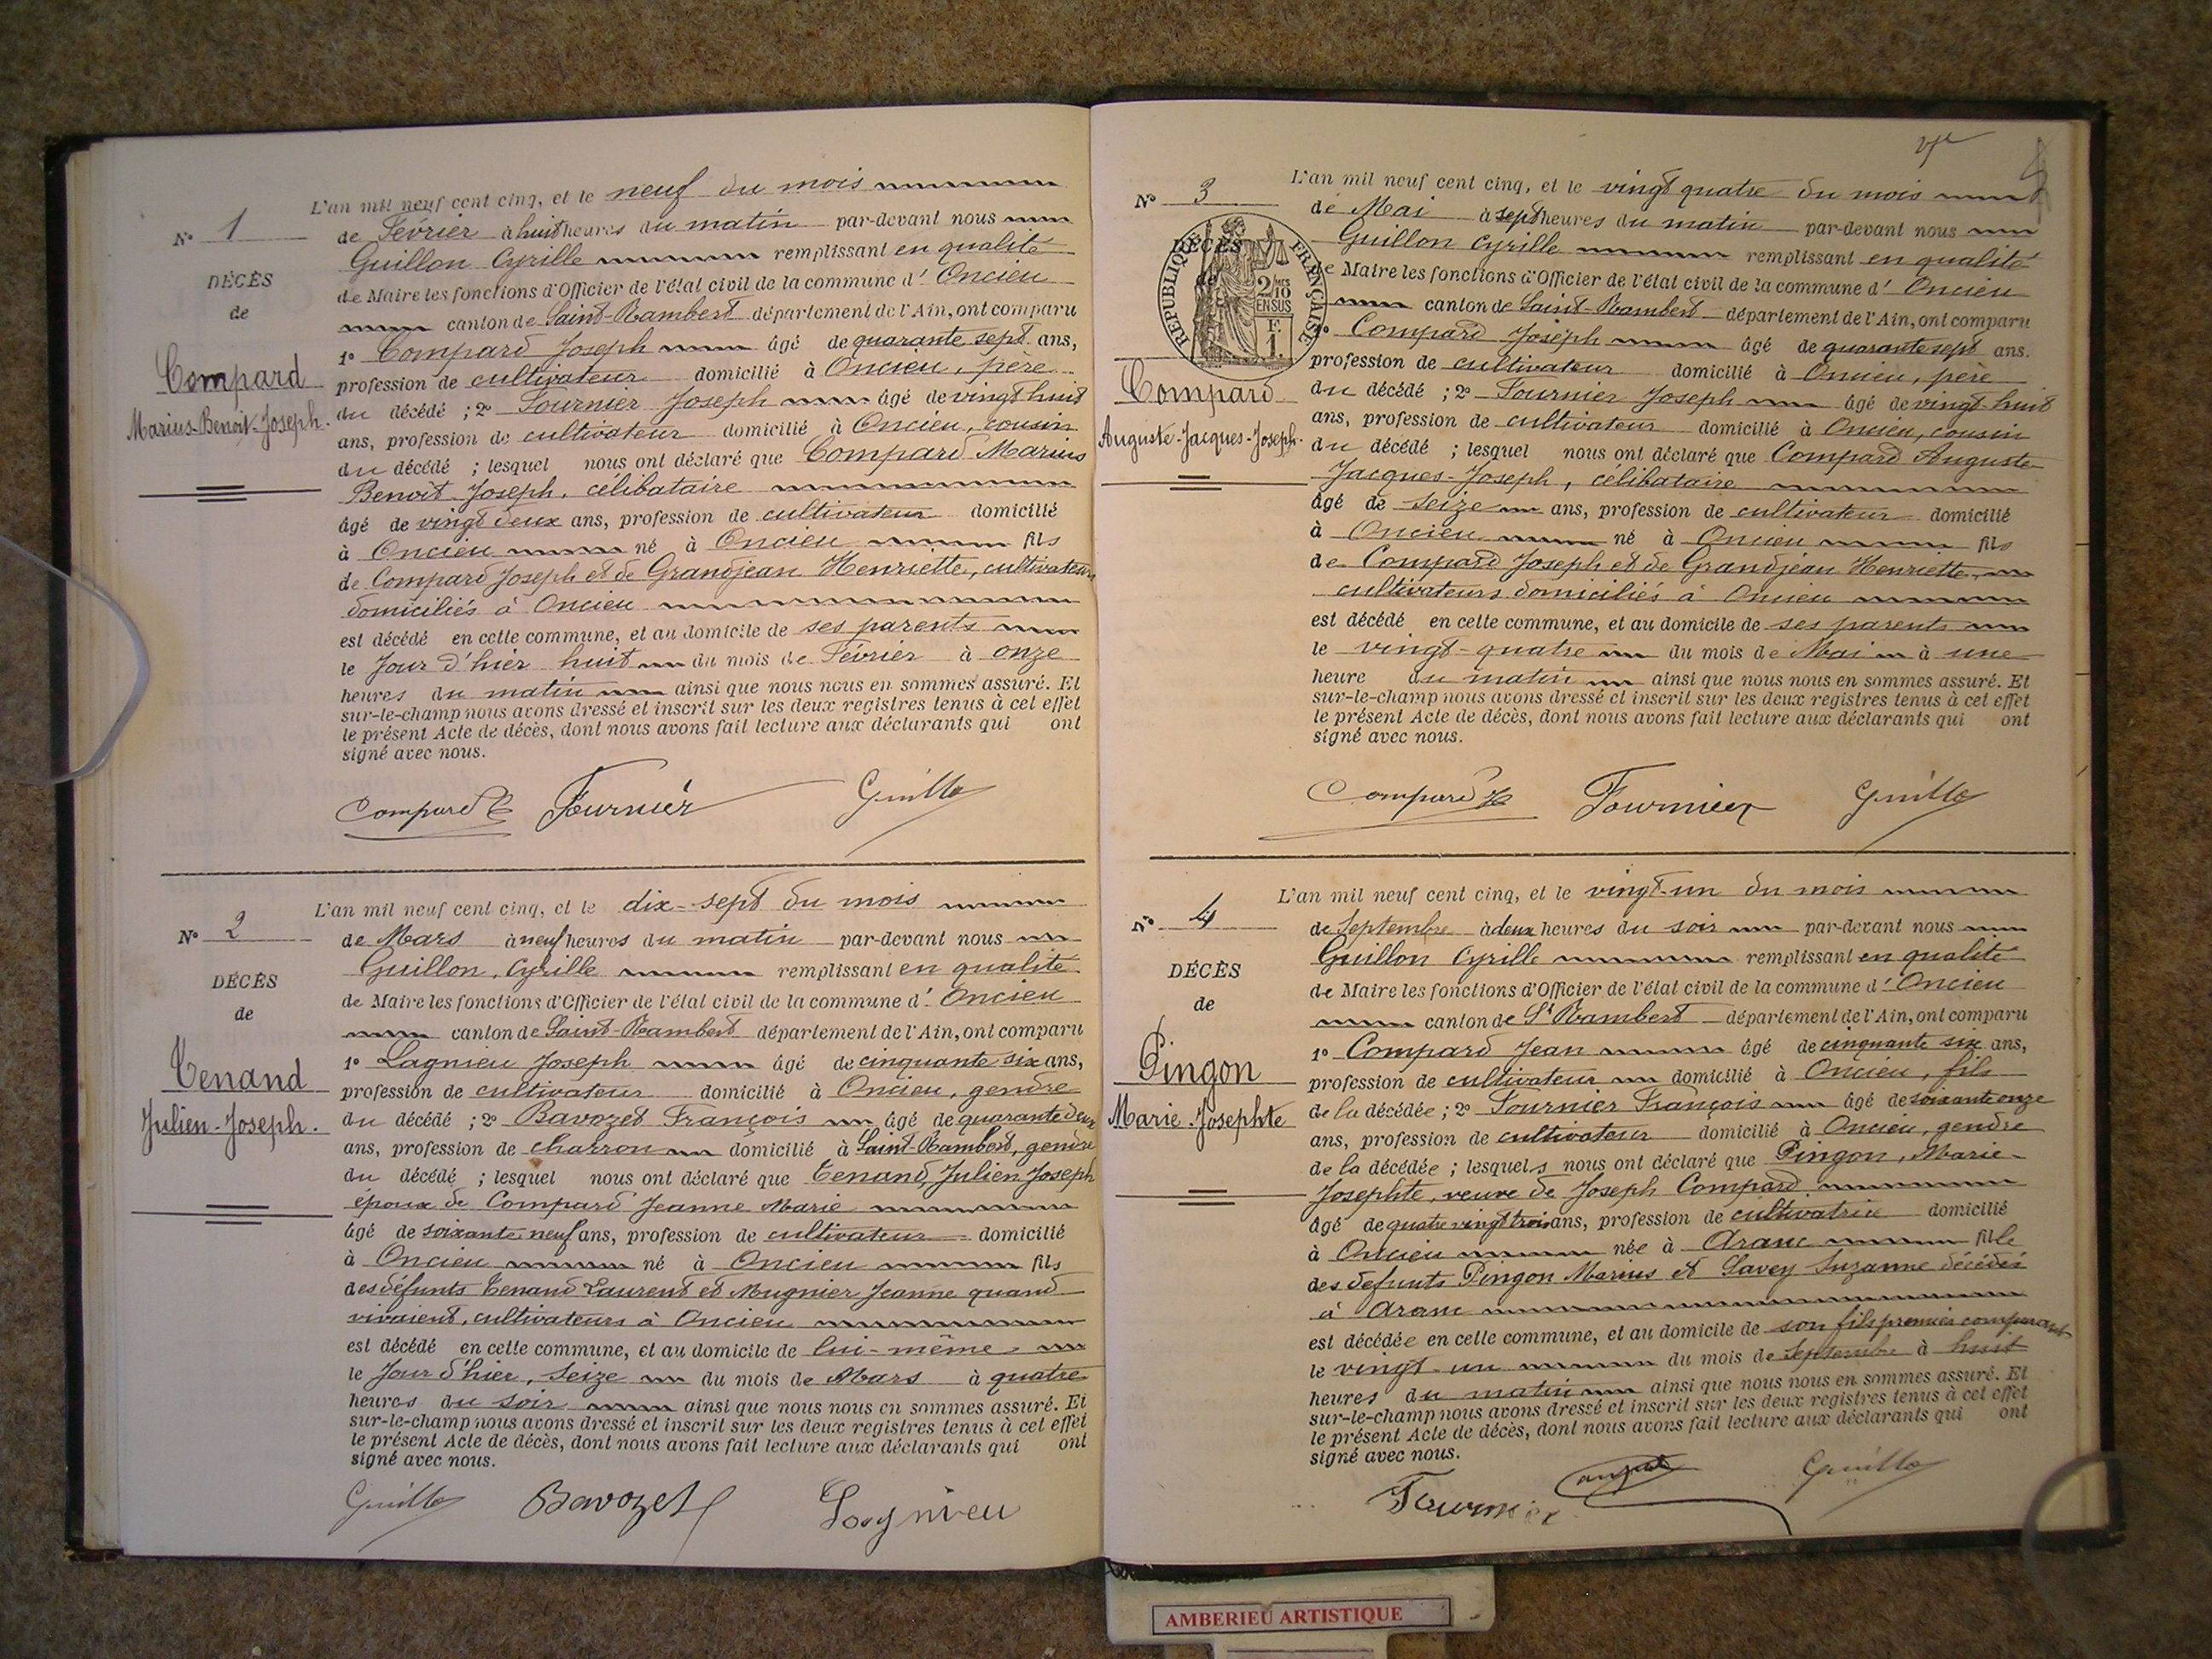 N° 1
DÉCÈS
de
Compard
Marius-Benoit-Joseph.
L'an mil neuf cent cinq, et le neuf du mois
de Février à huit heures du matin par-devant nous
Guillon Cyrille remplissant en qualité
de Maire les fonctions d'Officier de l'état civil de la commune d' Oncieu
canton de Saint-Rambert département de l'Ain, ont comparu
1° Compard Joseph âgé de quarante sept ans,
profession de cultivateur domicilié à Oncieu, père
du décédé ; 2° Fournier Joseph âgé de vingt huit
ans, profession de cultivateur domicilié à Oncieu, cousin
du décédé ; lesquel nous ont déclaré que Compard Marius
Benoit Joseph, célibataire
âgé de vingt deux ans, profession de cultivateur domicilié
à Oncieu né à Oncieu fils
de Compard Joseph et de Grandjean Henriette, cultivateurs
domiciliés à Oncieu
est décédé en cette commune, et au domicile de ses parents
le Jour d'hier huit du mois de Février à onze
heures du matin ainsi que nous nous en sommes assuré. Et
sur-le-champ nous avons dressé et inscrit sur les deux registres tenus à cet effet
le présent Acte de décès, dont nous avons fait lecture aux déclarants qui ont
signé avec nous.
Compard Fournier Guillo
N° 2
DÉCÈS
de
Tenand
Julien-Joseph.
L'an mil neuf cent cinq, et le dix-sept du mois
de Mars à neuf heures du matin par-devant nous
Guillon, Cyrille remplissant en qualité
de Maire les fonctions d'Officier de l'état civil de la commune d' Oncieu
canton de Saint-Rambert département de l'Ain, ont comparu
1° Lagnieu Joseph âgé de cinquante six ans,
profession de cultivateur domicilié à Oncieu, gendre
du décédé ; 2° Bavozet François âgé de quarante deux
ans, profession de charron domicilié à Saint-Rambert, gendre
du décédé ; lesquel nous ont déclaré que Tenand, Julien Joseph
époux de Compard Jeanne Marie
âgé de soixante neuf ans, profession de cultivateur domicilié
à Oncieu né à Oncieu fils
des défunts Tenand Laurent et Mugnier Jeanne quand
vivaient, cultivateurs à Oncieu
est décédé en cette commune, et au domicile de lui-même
le Jour d'hier, seize du mois de Mars à quatre
heures du soir ainsi que nous nous en sommes assuré. Et
sur-le-champ nous avons dressé et inscrit sur les deux registres tenus à cet effet
le présent Acte de décès, dont nous avons fait lecture aux déclarants qui ont
signé avec nous.
Guillo Bavozet Lagnieu
N° 3
DÉCÈS
de
RÉPUBLIQUE FRANÇAISE
2/10
EN SUS
F.
1.
Compard
Auguste-Jacques-Joseph.
L'an mil neuf cent cinq, et le vingt quatre du mois
de Mai à sept heures du matin par-devant nous
Guillon Cyrille remplissant en qualité
de Maire les fonctions d'Officier de l'état civil de la commune d' Oncieu
canton de Saint-Rambert département de l'Ain, ont comparu
1° Compard Joseph âgé de quarante sept ans.
profession de cultivateur domicilié à Oncieu, père
du décédé ; 2° Fournier Joseph âgé de vingt-huit
ans, profession de cultivateur domicilié à Oncieu, cousin
du décédé ; lesquel nous ont déclaré que Compard Auguste
Jacques-Joseph, célibataire
âgé de seize ans, profession de cultivateur domicilié
à Oncieu né à Oncieu fils
de Compard Joseph et de Grandjean Henriette,
cultivateurs domiciliés à Oncieu
est décédé en cette commune, et au domicile de ses parents
le vingt-quatre du mois de Mai à une
heure du matin ainsi que nous nous en sommes assuré. Et
sur-le-champ nous avons dressé et inscrit sur les deux registres tenus à cet effet
le présent Acte de décès, dont nous avons fait lecture aux déclarants qui ont
signé avec nous.
Compard Fournier Guillo
N° 4
DÉCÈS
de
Pingon
Marie-Josephte
L'an mil neuf cent cinq, et le vingt-un du mois
de Septembre à deux heures du soir par-devant nous
Guillon Cyrille remplissant en qualité
de Maire les fonctions d'Officier de l'état civil de la commune d' Oncieu
canton de St Rambert département de l'Ain, ont comparu
1° Compard Jean âgé de cinquante six ans,
profession de cultivateur domicilié à Oncieu, fils
de la décédée ; 2° Fournier François âgé de soixante onze
ans, profession de cultivateur domicilié à Oncieu, gendre
de la décédée ; lesquels nous ont déclaré que Pingon, Marie
Josephte, veuve de Joseph Compard
âgé de quatre vingt trois ans, profession de cultivatrice domicilié
à Oncieu née à Aranc fille
des defunts Pingon Marius et Savey Suzanne décédés
à Aranc
est décédée en cette commune, et au domicile de son fils premier comparant
le vingt-un du mois de Septembre à huit
heures du matin ainsi que nous nous en sommes assuré. Et
sur-le-champ nous avons dressé et inscrit sur les deux registres tenus à cet effet
le présent Acte de décès, dont nous avons fait lecture aux déclarants qui ont
signé avec nous.
Fournier Guillo
AMBERIEU ARTISTIQUE